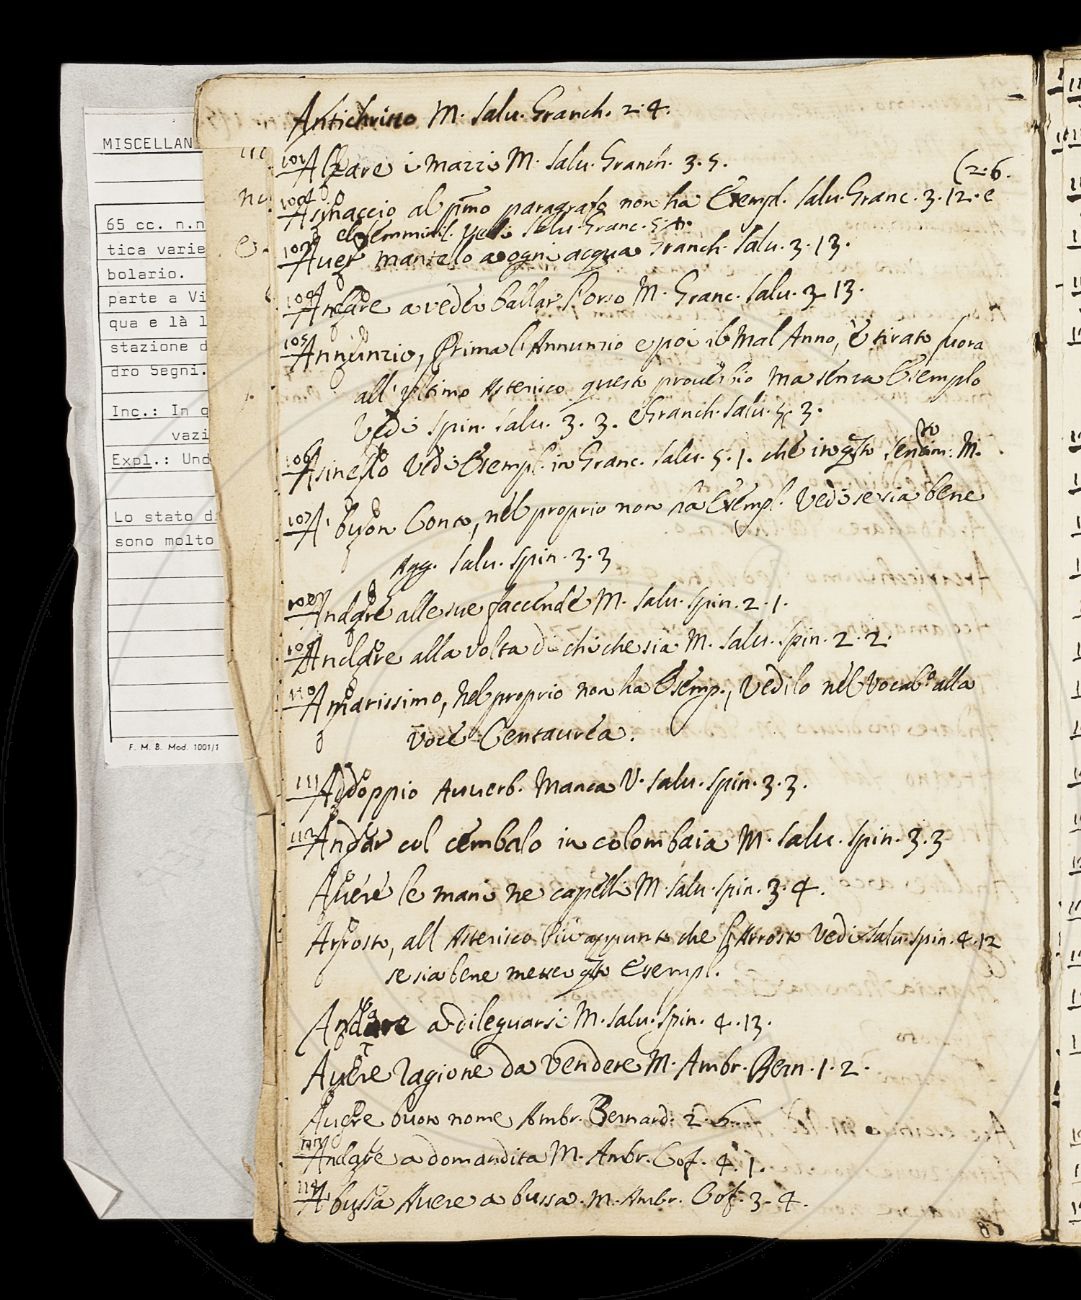 MISCELLAN
65 cc. n.n
tica varie
bolario.
parte a Vi
qua e là l
stazione d
dro Segni.
Inc.: In q
vazi
Expl.: Und
Lo stato d
sono molto
F. M. B. Mod. 1001/1
Antichristo M. Salu. Granch. 2. 4.
101 Alzare i mazzi M. Salu. Granch. 3. 5.
(2. 6.
Asinaccio al pmo paragrafo non ha Esempl. Salu. Granc. 3. 12. e
Auer mantello a ogni acqua Granch. Salu. 3. 13.
104 Andare a veder ballar l'orso M. Granc. Salu. 3 13.
105 Annunzio, Prima l'Annunzio e poi il Mal Anno, è tirato fuora
all' ultimo Asterisco questo prouerbio ma senza Esemplo
Vedi Spin. Salu. 3. 3. e Granch. Salu. 5. 3.
106 Asinello Vedi Esempl. in Granc. Salu. 5. 1. che in qsto sentim.to M.
107 A' buon Conto, nel proprio non ha Esempl. Vedi se sia bene
Agg. Salu. Spin. 3. 3
108 Andare alle sue faccende M. Salu. Spin. 2. 1.
109 Andare alla volta di chi che sia M. Salu. Spin. 2. 2.
110 Amarissimo, Nel proprio non ha Esemp., Vedilo nel Vocab.o alla
Voce Centaurea.
111 Addoppio Auuerb. Manca V. Salu. Spin. 3. 3.
112 Andar col cembalo in colombaia M. Salu. Spin. 3. 3
Auere le mani ne capelli M. Salu. Spin. 3. 4.
Arrosto, all Asterisco Più appunto che l'Arrosto Vedi Salu. Spin. 4. 12
se sia bene metter qsto Esempl.
Andare a dileguarsi M. Salu. Spin. 4. 13.
Auere ragione da Vendere M. Ambr. Bern. 1. 2.
Auere buon nome Ambr. Bernard. 2. 6.
113 Andare a domandita M. Ambr. Cof. 4. 1.
114 A bussa Auere a bussa. M. Ambr. Cof. 3. 4.